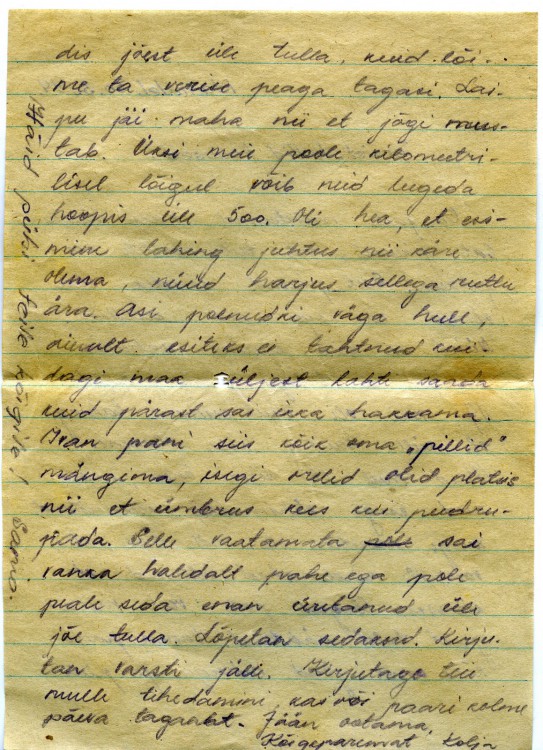 dis jõest üle tulla, kuid lõi-
me ta verise peaga tagasi. Lai-
pu jäi maha nii et jõgi mus-
tab. Üksi meie poole kilomeetri-
lisel lõigul võib neid lugeda
hoopis üle 500. Oli hea, et esi-
mene lahing juhtus nii käre
olema, nüüd harjus sellega ruttu
ära. Asi polnudki väga hull,
ainult esiteks ei tahtnud kui-
dagi maa küljest lahti saada
kuid pärast sai ikka hakkama.
Ivan pani siis kõik oma „pillid"
mängima, isegi orelid olid platsis
nii et ümbrus kees kui pudru-
pada. Selle vaatamata pole sai
vanka haledalt pähe ega pole
peale seda enam üritanud üle
jõe tulla. Lõpetan sedakord. Kirju-
tan varsti jälle. Kirjutage teie
mulle tihedamini, kas või paari kolme
päeva tagant. Jään ootama.
Kõigeparemat
Häid pühi teile kõigile!